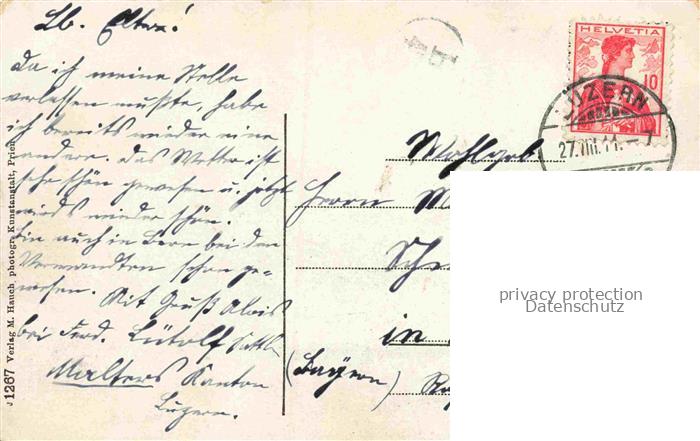 Lb. Eltern!
Da ich meine Stelle
verlassen mußte, habe
ich bereits wieder eine
andere. Das Wetter ist
sehr schön gewesen u. jetzt
wieder schön.
Bin auch in Bern bei den
Verwandten schon ge-
wesen. Mit Gruß Alois
bei Ferd. Lütolf
Malters Kanton
Luzern.
HELVETIA
10
LUZERN
27.VIII.11.-7
Wohlgeb
Herrn
in
(Bayern)
J 1267 Verlag M. Hauch photogr. Kunstanstalt, Prien
privacy protection
Datenschutz